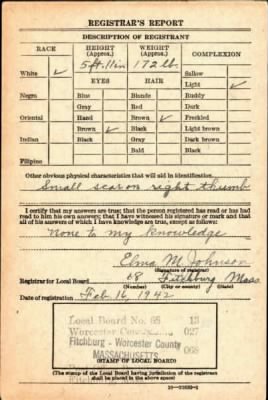 REGISTRAR'S REPORT
DESCRIPTION OF REGISTRANT
RACE HEIGHT (Approx.) WEIGHT (Approx.) COMPLEXION
5 ft. 11 in 172 lb.
White ✓ Sallow
EYES HAIR Light ✓
Negro Blue Blonde Ruddy
Gray Red Dark
Oriental Hazel Brown ✓ Freckled
Brown ✓ Black Light brown
Indian Black Gray Dark brown
Bald Black
Filipino
Other obvious physical characteristics that will aid in identification
Small scar on right thumb
I certify that my answers are true; that the person registered has read or has had
read to him his own answers; that I have witnessed his signature or mark and that
all of his answers of which I have knowledge are true, except as follows:
None to my knowledge
Elma M. Johnson
(Signature of registrar)
Registrar for Local Board 68 Fitchburg Mass
(Number) (City or county) (State)
Date of registration Feb 16, 1942
Local Board No. 68 13
Worcester 027
Fitchburg - Worcester County
MASSACHUSETTS 068
(STAMP OF LOCAL BOARD)
(The stamp of the Local Board having jurisdiction of the registrant
shall be placed in the above space.)